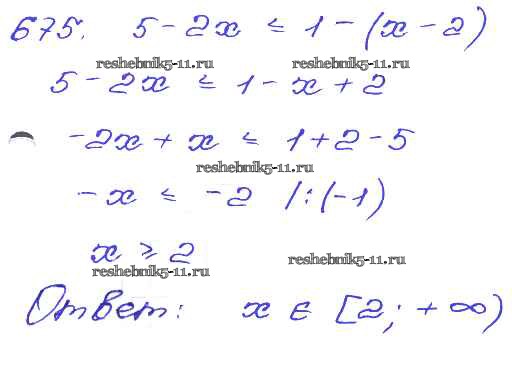 675. 5 - 2x ≤ 1 - (x - 2)
reshebnik5-11.ru reshebnik5-11.ru
5 - 2x ≤ 1 - x + 2
-2x + x ≤ 1 + 2 - 5
reshebnik5-11.ru
-x ≤ -2 /:(-1)
x ≥ 2
reshebnik5-11.ru reshebnik5-11.ru
Ответ: x ∈ [2; +∞)